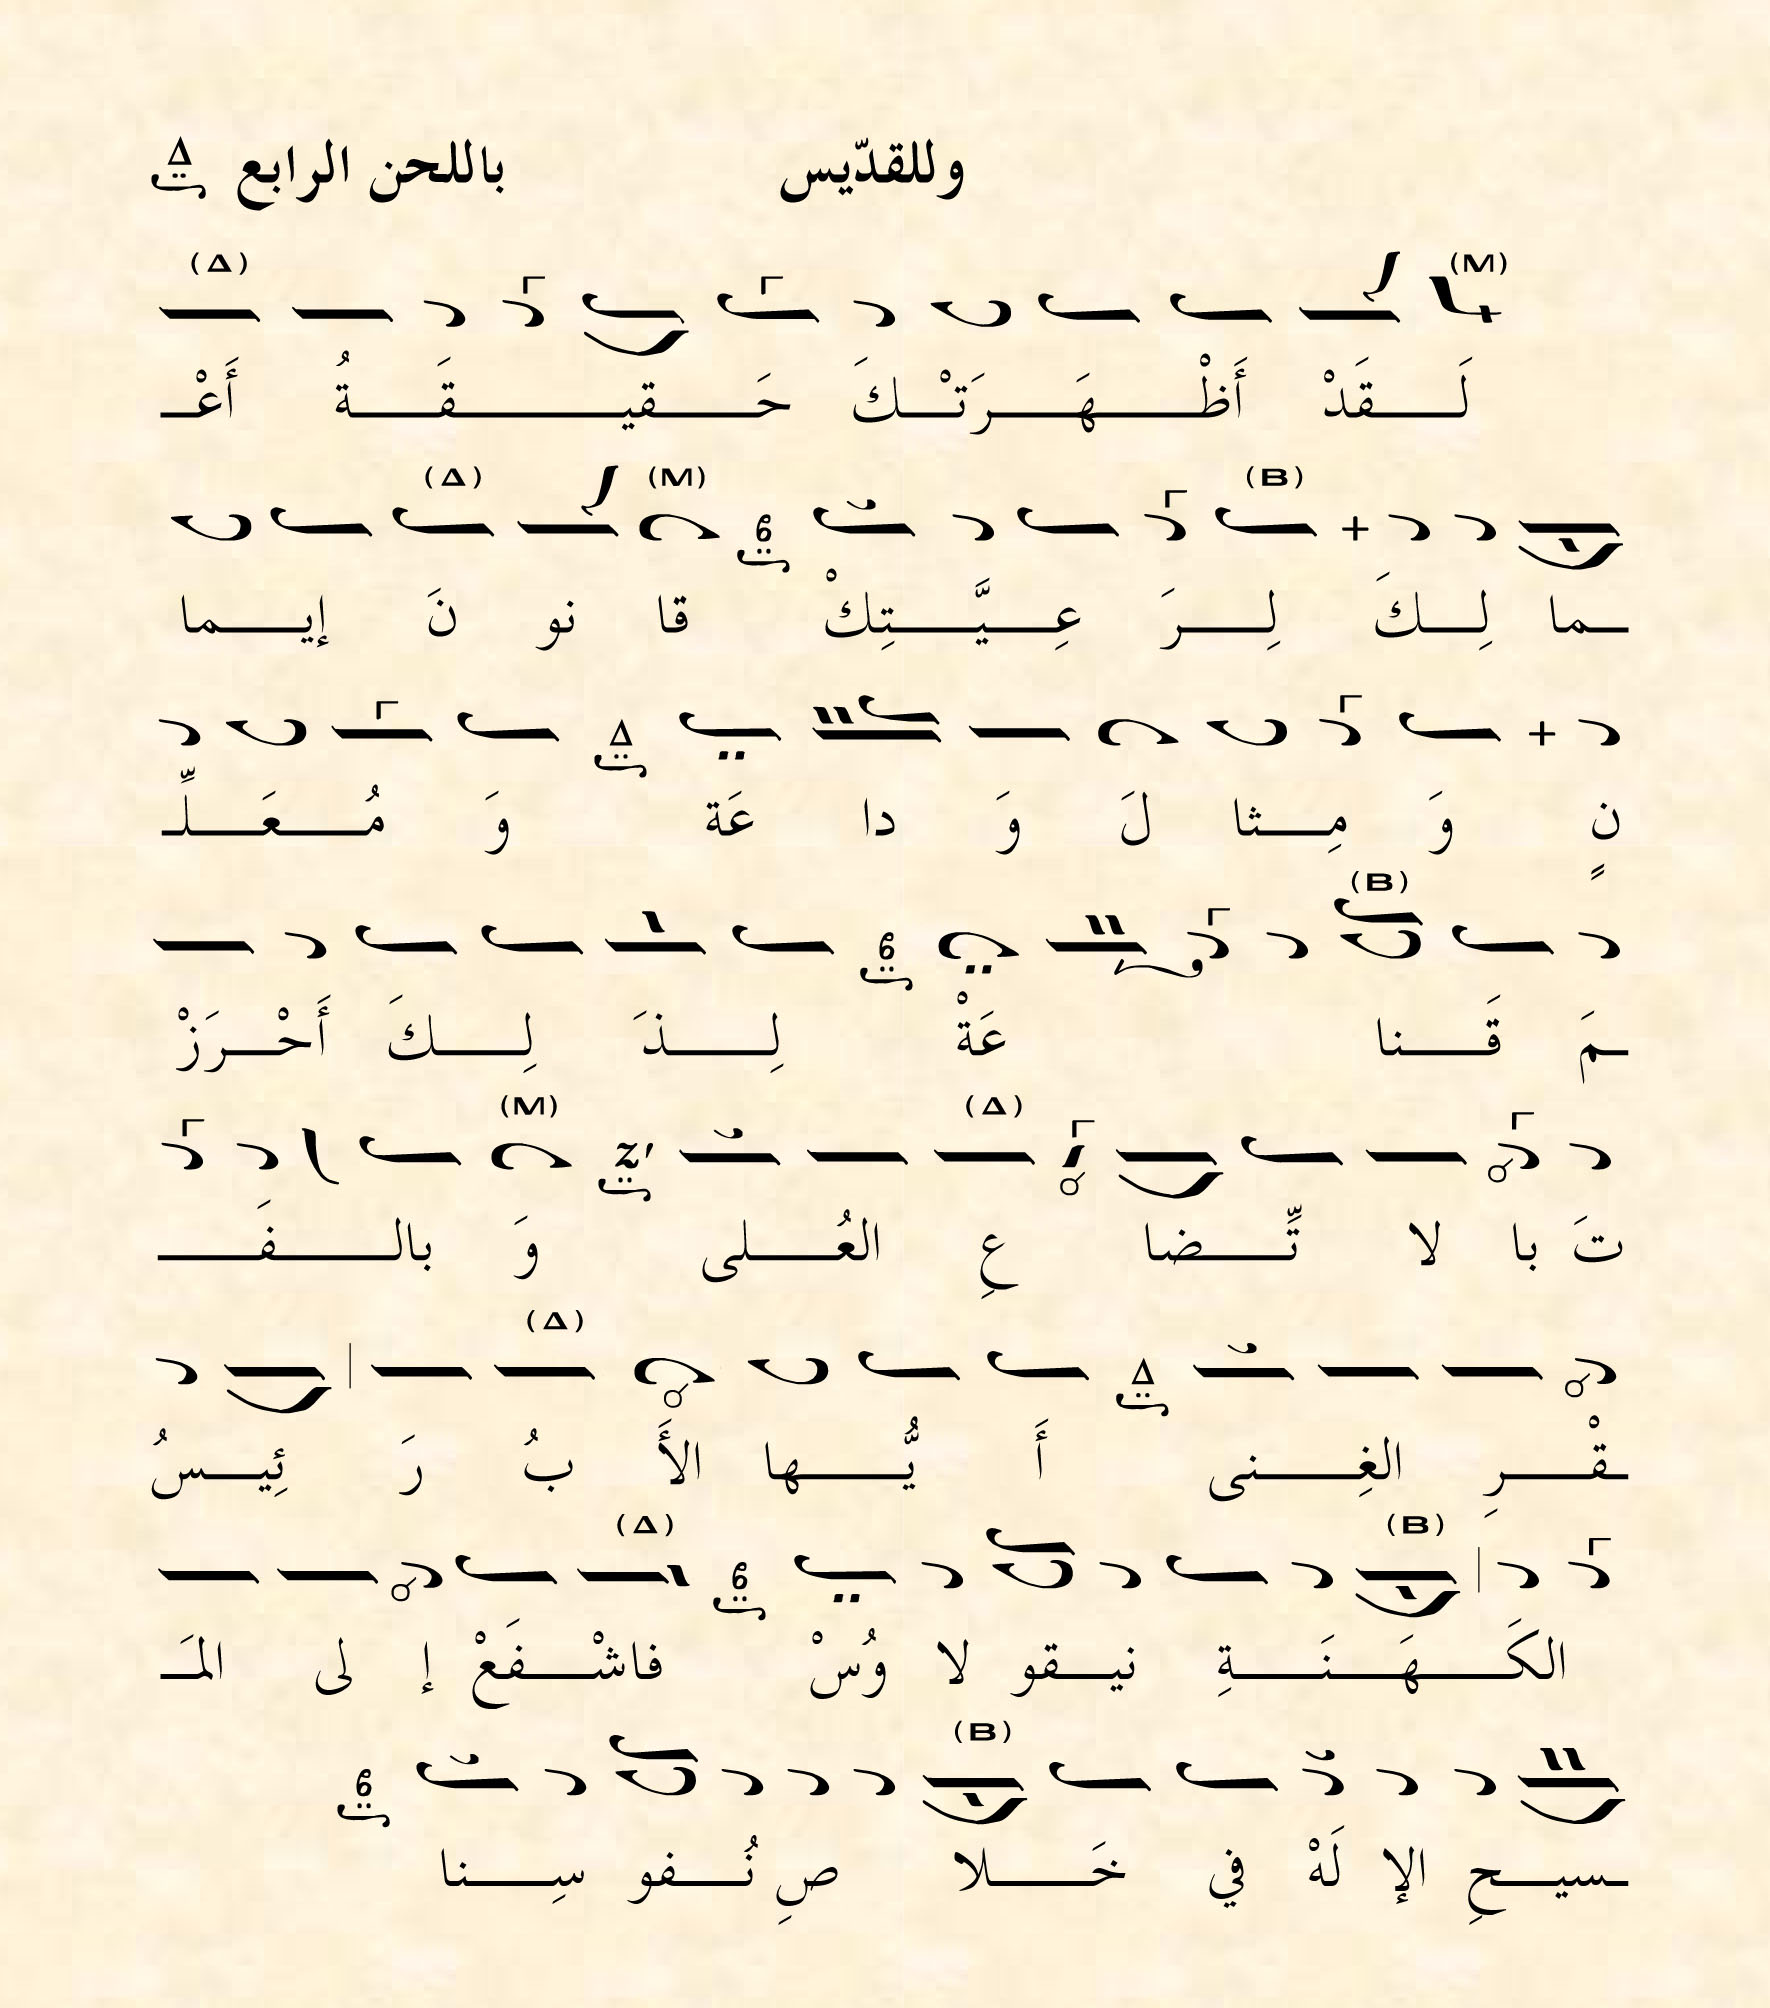 وللقدّيس باللحن الرابع Δ
(M) (Δ)
لَـقَدْ أَظْـهَـرَتْـكَ حَـقيـقَـةُ أَعْـ
(B) (M) (Δ)
ـما لِـكَ لِـرَ عِـيَّـتِكْ قا نو نَ إيـما
Δ
نٍ وَ مِـثا لَ وَ دا عَة وَ مُـعَـلِّـ
(B)
ـمَ قَـنا عَةْ لِـذَ لِـكَ أَحْـرَزْ
(Δ) (M)
تَ با لا تِّـضا عِ العُـلى وَ بالـفَـ
Δ (Δ)
ـقْـرِ الغِـنى أَ يُّـها الأَ بُ رَ ئِيـسُ
(B) (Δ)
الكَـهَـنَـةِ نيـقو لا وُسْ فاشْـفَعْ إ لى المَـ
(B)
ـسيـحِ الإ لَهْ في خَـلا صِ نُـفو سِـنا